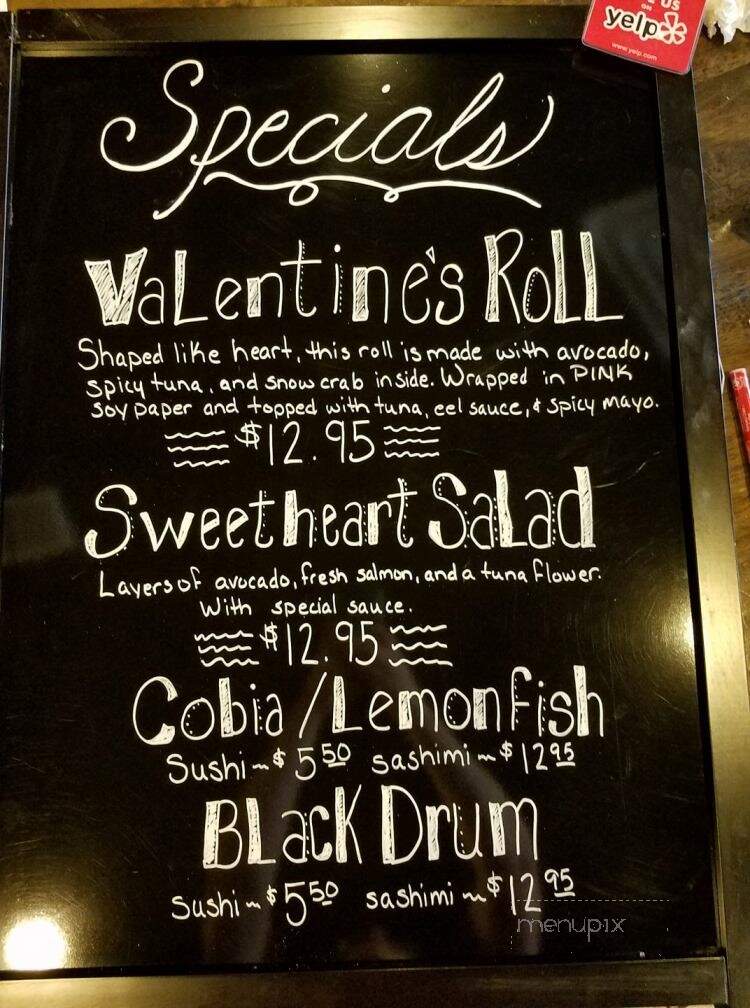 US
ON
yelp
www.yelp.com
Specials
Valentine's Roll
Shaped like heart, this roll is made with avocado,
spicy tuna, and snow crab inside. Wrapped in PINK
soy paper and topped with tuna, eel sauce, & spicy mayo.
$12.95
Sweetheart Salad
Layers of avocado, fresh salmon, and a tuna flower.
With special sauce.
$12.95
Cobia / Lemonfish
Sushi ~ $5 50 sashimi ~ $12 95
Black Drum
Sushi ~ $5 50 sashimi ~ $12 95
menupix